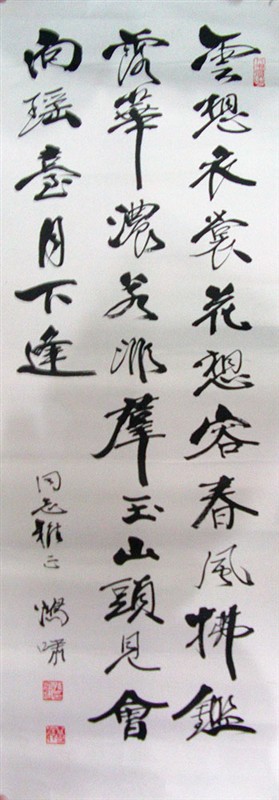 雲想衣裳花想容春風拂鑑
露華濃若非羣玉山頭見會
向瑤臺月下逢
同志雅正